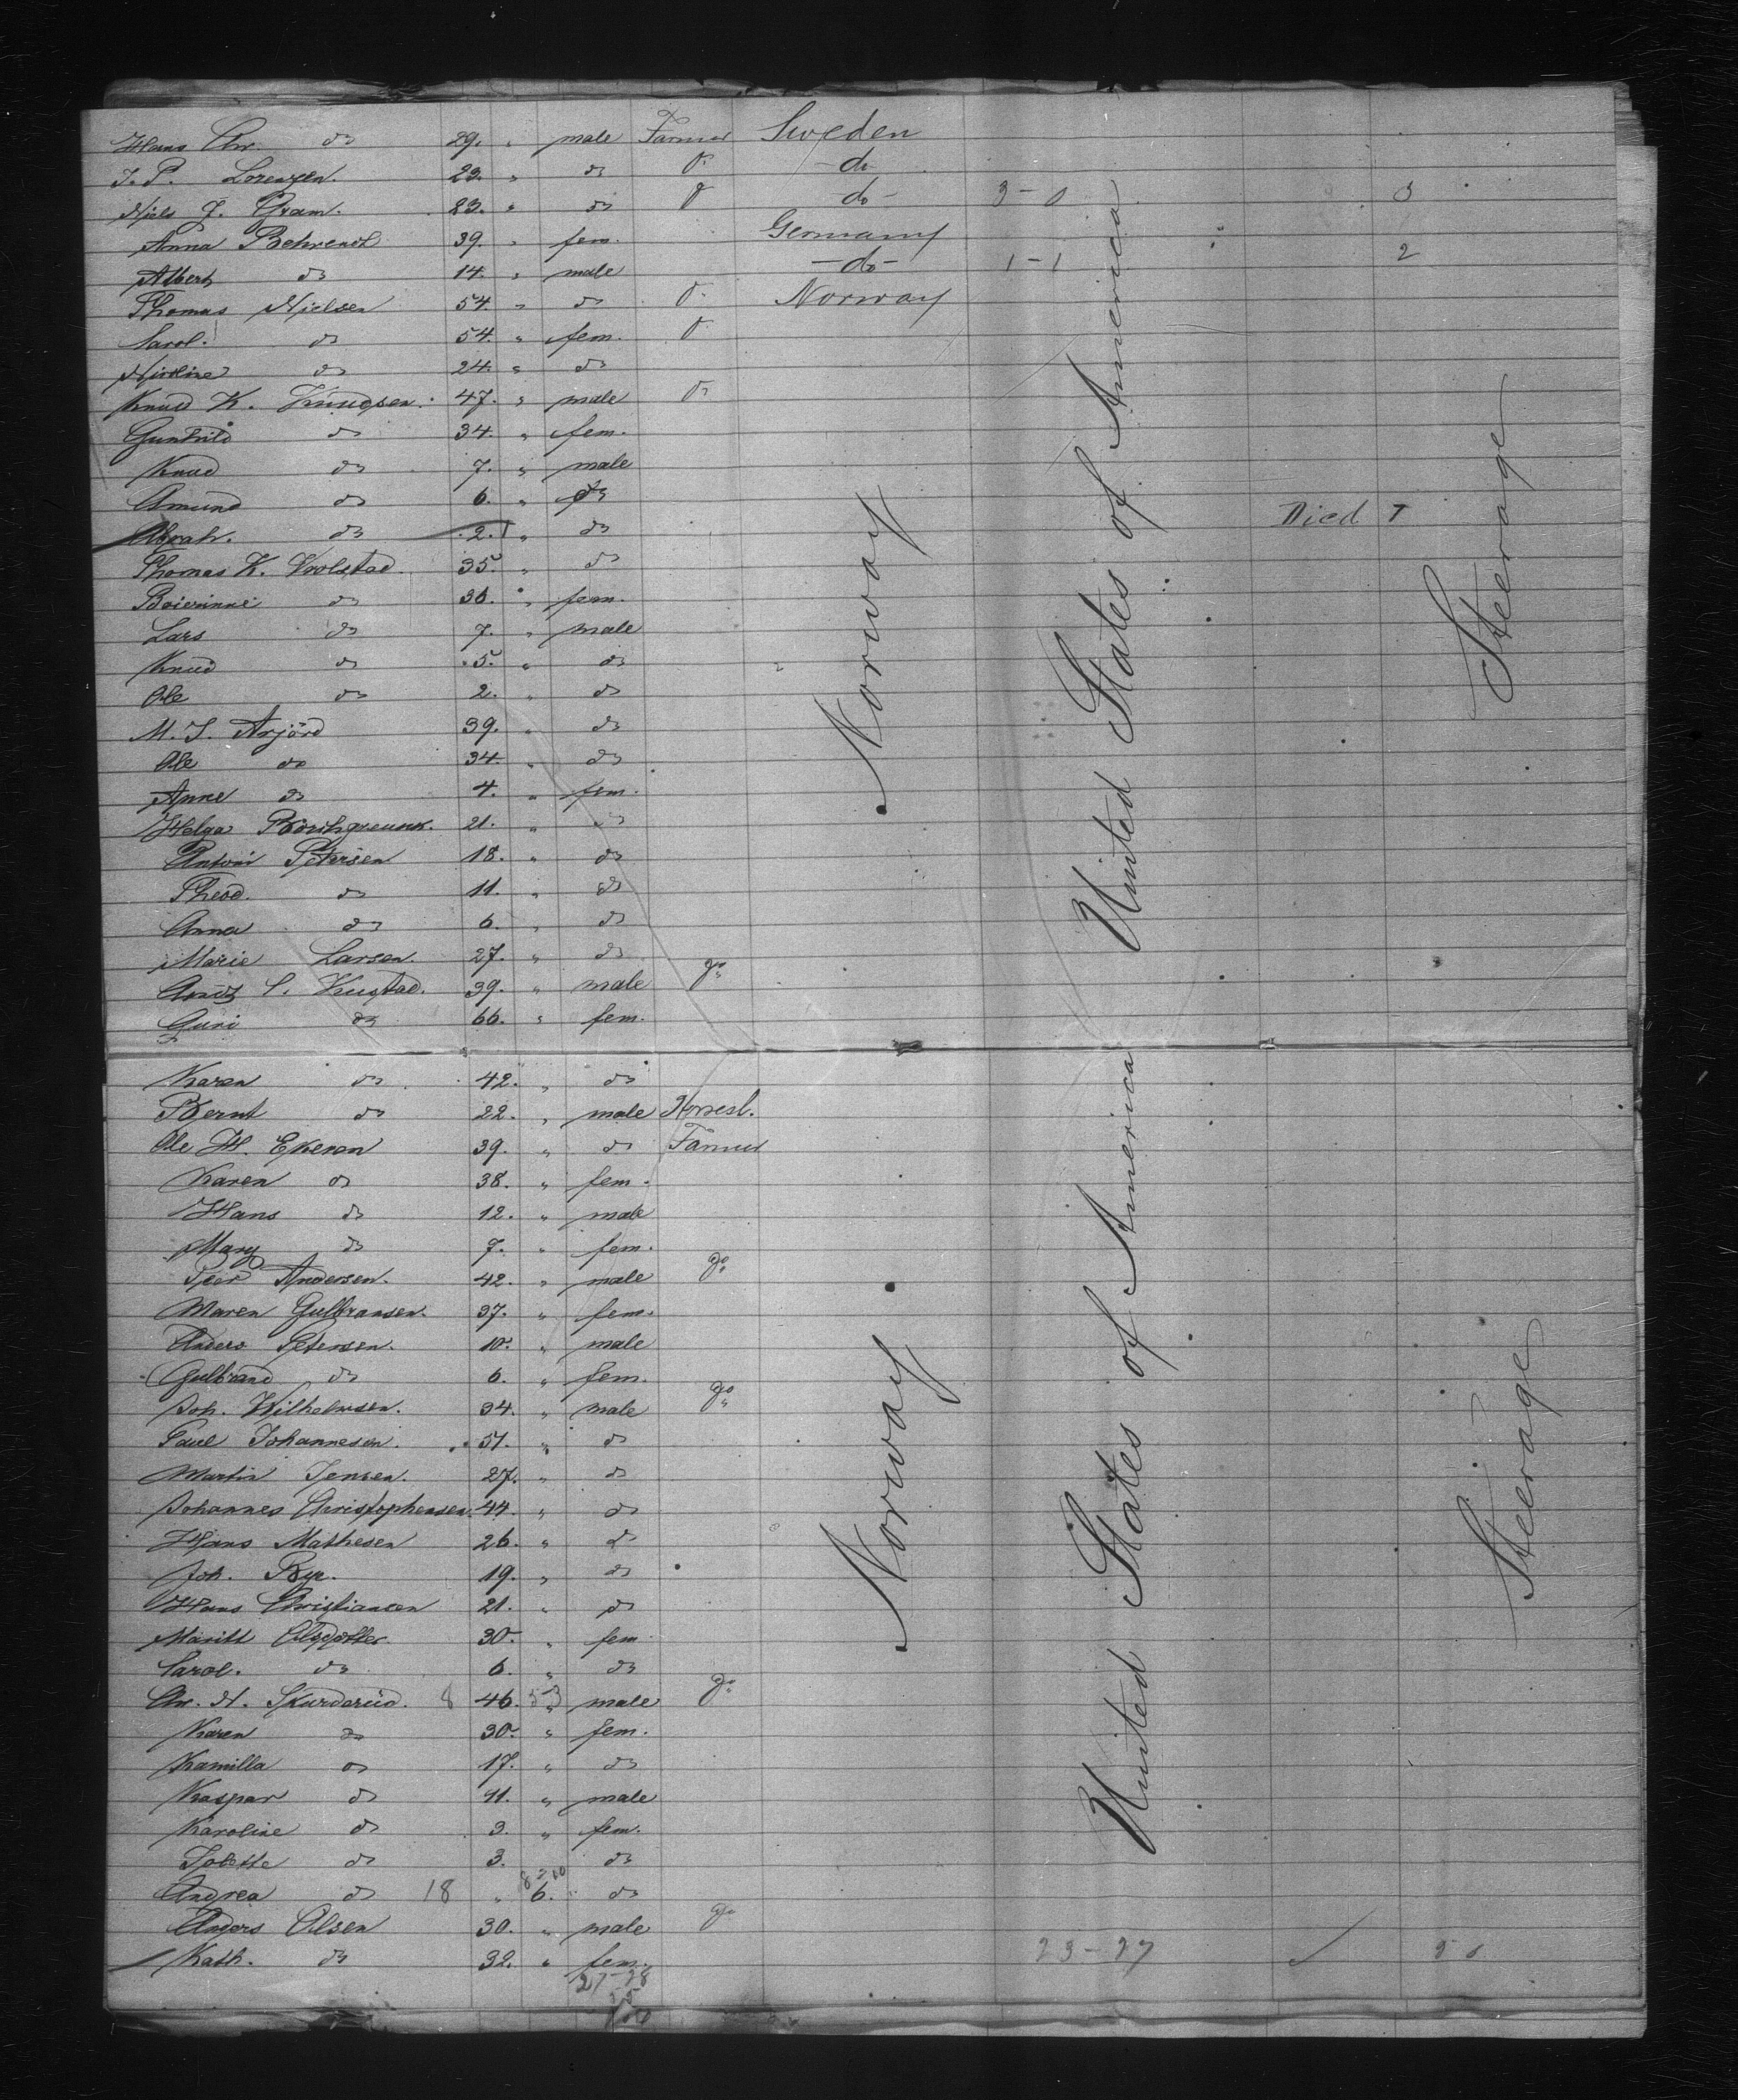 Hans Chr. do 29. " male Farmer Sweden
J. P. Lorenzen. 23. " do do - do -
Niels J. Gram. 23. " do do do - 3 - 0 3
Anna Behrendt 39. " fem. Germany
Albert do 14. " male - do - 1 - 1 2
Thomas Nielsen 54. " do do Norway
Carol. do 54. " fem. do
do 24. " do
Knud K. Knudsen. 47. " male do
Gunhild do 34. " fem.
Knud do 7. " male
Amund do 6. " do
Abrah. do 2. " do Died 1
Thomas K. Kvolstad. 35. " do
do 36. " fem.
Lars do 7. " male
Knud do 5. " do
Ole do 2. " do
M. S. Arjörd 39. " do
Ole do 34. " do
Anne do 4. " fem.
Helga 21. " do
Antoni Petersen 18. " do
Theod. do 11. " do
Anna do 6. " do
Marie Larsen. 27. " do
39. " male do
Guri do 66. " fem.
Norway
United States of America
Steerage
Karen do 42. " do
Bernt do 22. " male
Ole H. Ekeren 39. " do Farmer
Karen do 38. " fem.
Hans do 12. " male
Mary do 7. " fem.
Peer Andersen. 42. " male do
Maren Gulbransen. 37. " fem.
Anders Petersen. 10. " male
Gulbrand do 6. " fem.
Joh. Wilhelmsen. 34. " male do
Paul Johannesen. 51. " do
Martin Jensen. 27. " do
Johannes Christophensen. 44. " do
Hans Mathesen 26. " do
Joh. Bye. 19. " do
Hans Christiansen 21. " do
Maritt Olsdotter 30. " fem
Carol. do 6. " do
Chr. N. Skurderud. 8 46. 53 male do
Karen do 30. " fem.
Kamilla do 17. " do
Kaspar do 11. " male
Karoline do 3. " fem.
do 3. do
Andrea do 18 " 6. do
Anders Olsen 30. " male do
Kath. do 32. " fem. 23 - 27
27-28
55
Norway
United States of America
Steerage